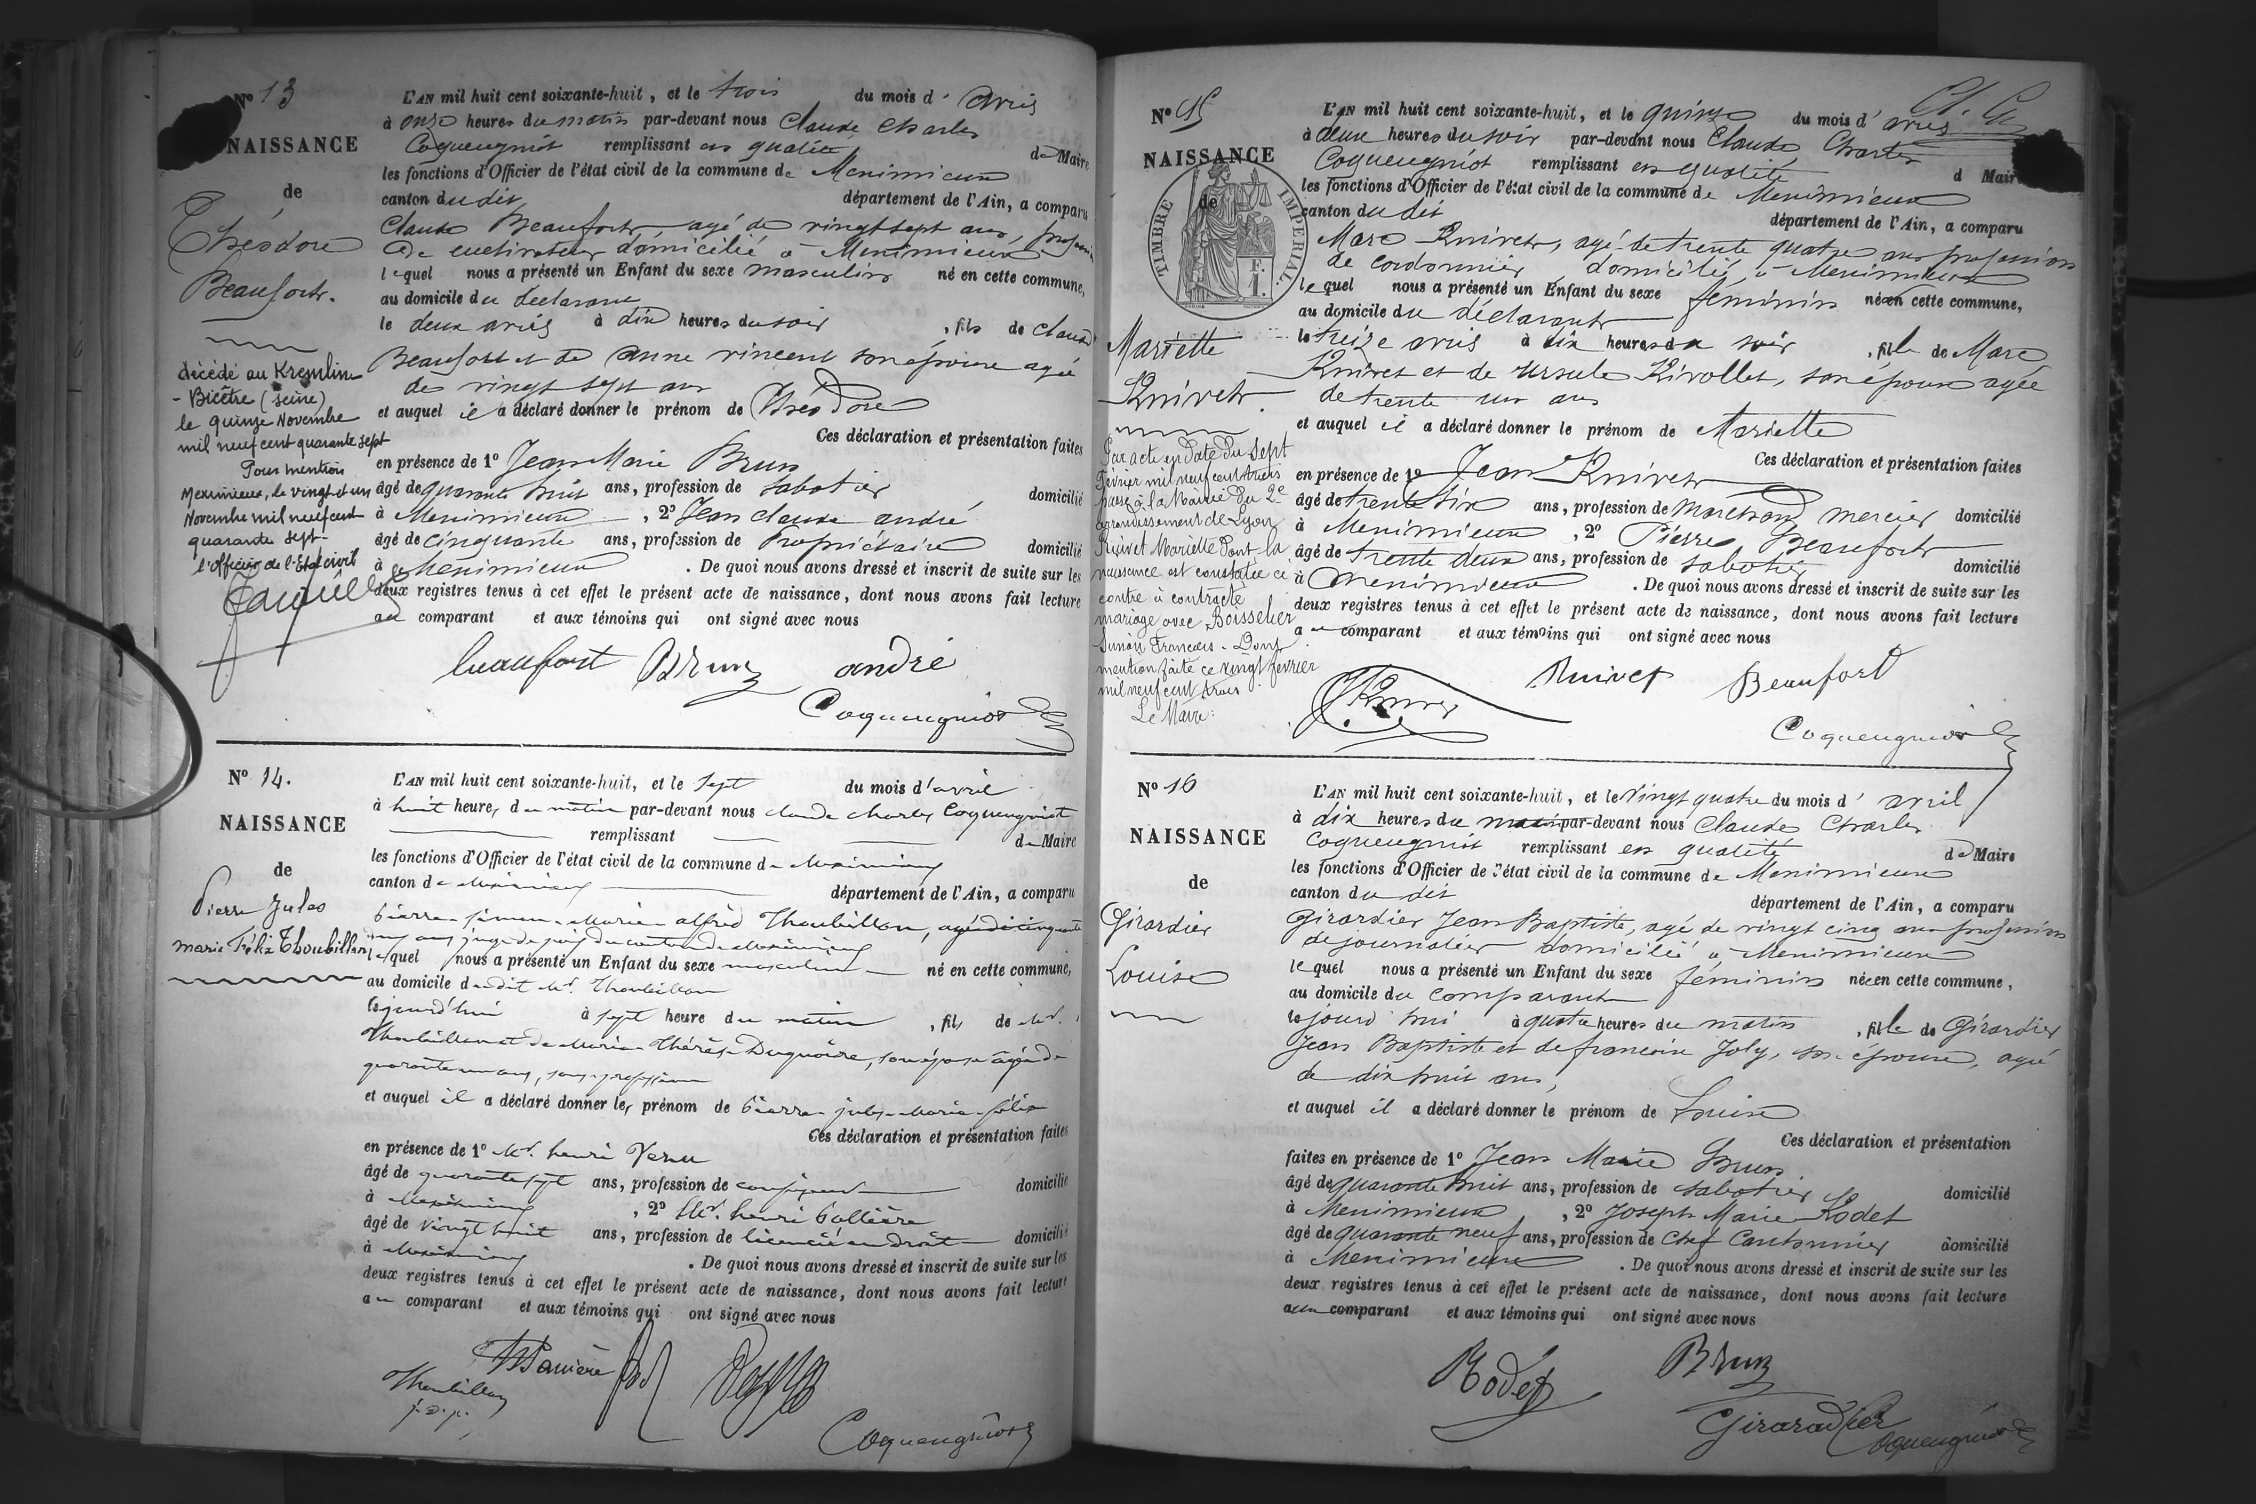 N° 13
NAISSANCE
de
Théodore
Beaufort.
décédé au Kremlin
- Bicêtre (Seine)
le quinze Novembre
mil neuf cent quarante sept
Pour mention
Meximieux, le vingt et un
Novembre mil neuf cent
quarante sept -
l'officier de l'Etat civil
L'AN mil huit cent soixante-huit, et le trois du mois d'avril
à onze heures du matin par-devant nous Claude Charles
Coquengniot remplissant en qualité de Maire
les fonctions d'Officier de l'état civil de la commune de Meximieux
canton du dit département de l'Ain, a comparu
Claude Beaufort, agé de vingt sept ans, profession
de cultivateur domicilié à Meximieux
lequel nous a présenté un Enfant du sexe masculin né en cette commune,
au domicile du déclarant
le deux avril à dix heures du soir, fils de Claude
Beaufort et de Anne Vincent son épouse agée
de vingt sept ans
et auquel il a déclaré donner le prénom de Théodore
Ces déclaration et présentation faites
en présence de 1° Jean Marie Brun
âgé de quarante huit ans, profession de sabotier domicilié
à Meximieux, 2° Jean Claude André
âgé de cinquante ans, profession de Propriétaire domicilié
à Meximieux. De quoi nous avons dressé et inscrit de suite sur les
deux registres tenus à cet effet le présent acte de naissance, dont nous avons fait lecture
au comparant et aux témoins qui ont signé avec nous
beaufort Brun andré
Coquengniot
N° 14.
NAISSANCE
de
Pierre Jules
marie Félix Thoubillon
L'AN mil huit cent soixante-huit, et le sept du mois d'avril
à huit heures du matin par-devant nous Claude Charles Coquengniot
remplissant de Maire
les fonctions d'Officier de l'état civil de la commune de Meximieux
canton de Meximieux département de l'Ain, a comparu
Pierre Simon Marie Alfred Thoubillon, agé de cinquante
ans juge de paix du canton de Meximieux
lequel nous a présenté un Enfant du sexe masculin né en cette commune,
au domicile dudit Mr. Thoubillon
le jourd'hui à sept heures du matin, fils de Mr.
Thoubillon et de Marie Thérèse son épouse âgée de
quarante un ans, sans profession
et auquel il a déclaré donner les prénom de Pierre jules Marie félix
Ces déclaration et présentation faites
en présence de 1° Mr. henri
âgé de quarante sept ans, profession de domicilié
à Meximieux, 2° Mr. henri
âgé de vingt huit ans, profession de licencié en Droit domicilié
à Meximieux. De quoi nous avons dressé et inscrit de suite sur les
deux registres tenus à cet effet le présent acte de naissance, dont nous avons fait lecture
au comparant et aux témoins qui ont signé avec nous
Thoubillon
j. d. p.
Coquengniot
N° 15
NAISSANCE
de
TIMBRE IMPERIAL.
F.
1.
Mariette
Knivet
Par acte en date du sept
février mil neuf cent trois
passé à la Mairie du 2e
arrondissement de Lyon
Knivet Mariette dont la
naissance est constatée ci
contre à contracté
mariage avec Boisselier
Simon François - Dont
mention faite ce vingt février
mil neuf cent trois
Le Maire:
L'AN mil huit cent soixante-huit, et le quinze du mois d'avril
à deux heures du soir par-devant nous Claude Charles
Coquengniot remplissant en qualité d Maire
les fonctions d'Officier de l'état civil de la commune de Meximieux
canton du dit département de l'Ain, a comparu
Marc Knivet, agé de trente quatre ans profession
de cordonnier domicilié à Meximieux
lequel nous a présenté un Enfant du sexe féminin née en cette commune,
au domicile du déclarant
le treize avril à dix heures du soir, fille de Marc
Knivet et de Ursule Rivollet, son épouse agée
de trente un ans
et auquel il a déclaré donner le prénom de Mariette
Ces déclaration et présentation faites
en présence de 1° Jean Knivet
âgé de trente six ans, profession de Marchand mercier domicilié
à Meximieux, 2° Pierre Beaufort
âgé de trente deux ans, profession de sabotier domicilié
à Meximieux. De quoi nous avons dressé et inscrit de suite sur les
deux registres tenus à cet effet le présent acte de naissance, dont nous avons fait lecture
au comparant et aux témoins qui ont signé avec nous
Knivet Beaufort
Coquengniot
N° 16
NAISSANCE
de
Girardier
Louise
L'AN mil huit cent soixante-huit, et le Vingt quatre du mois d'avril
à dix heures du matin par-devant nous Claude Charles
Coquengniot remplissant en qualité de Maire
les fonctions d'Officier de l'état civil de la commune de Meximieux
canton du dit département de l'Ain, a comparu
Girardier Jean Baptiste, agé de vingt cinq ans profession
de journalier domicilié à Meximieux
lequel nous a présenté un Enfant du sexe féminin née en cette commune,
au domicile du comparant
le jourd'hui à quatre heures du matin, fille de Girardier
Jean Baptiste et de françoise Joly, son épouse, agée
de dix huit ans,
et auquel il a déclaré donner le prénom de Louise
Ces déclaration et présentation
faites en présence de 1° Jean Marie Brun
âgé de quarante huit ans, profession de sabotier domicilié
à Meximieux, 2° Joseph Marie Rodet
âgé de quarante neuf ans, profession de Chef Cantonnier domicilié
à Meximieux. De quoi nous avons dressé et inscrit de suite sur les
deux registres tenus à cet effet le présent acte de naissance, dont nous avons fait lecture
au comparant et aux témoins qui ont signé avec nous
Rodet Brun
Girardier Coquengniot